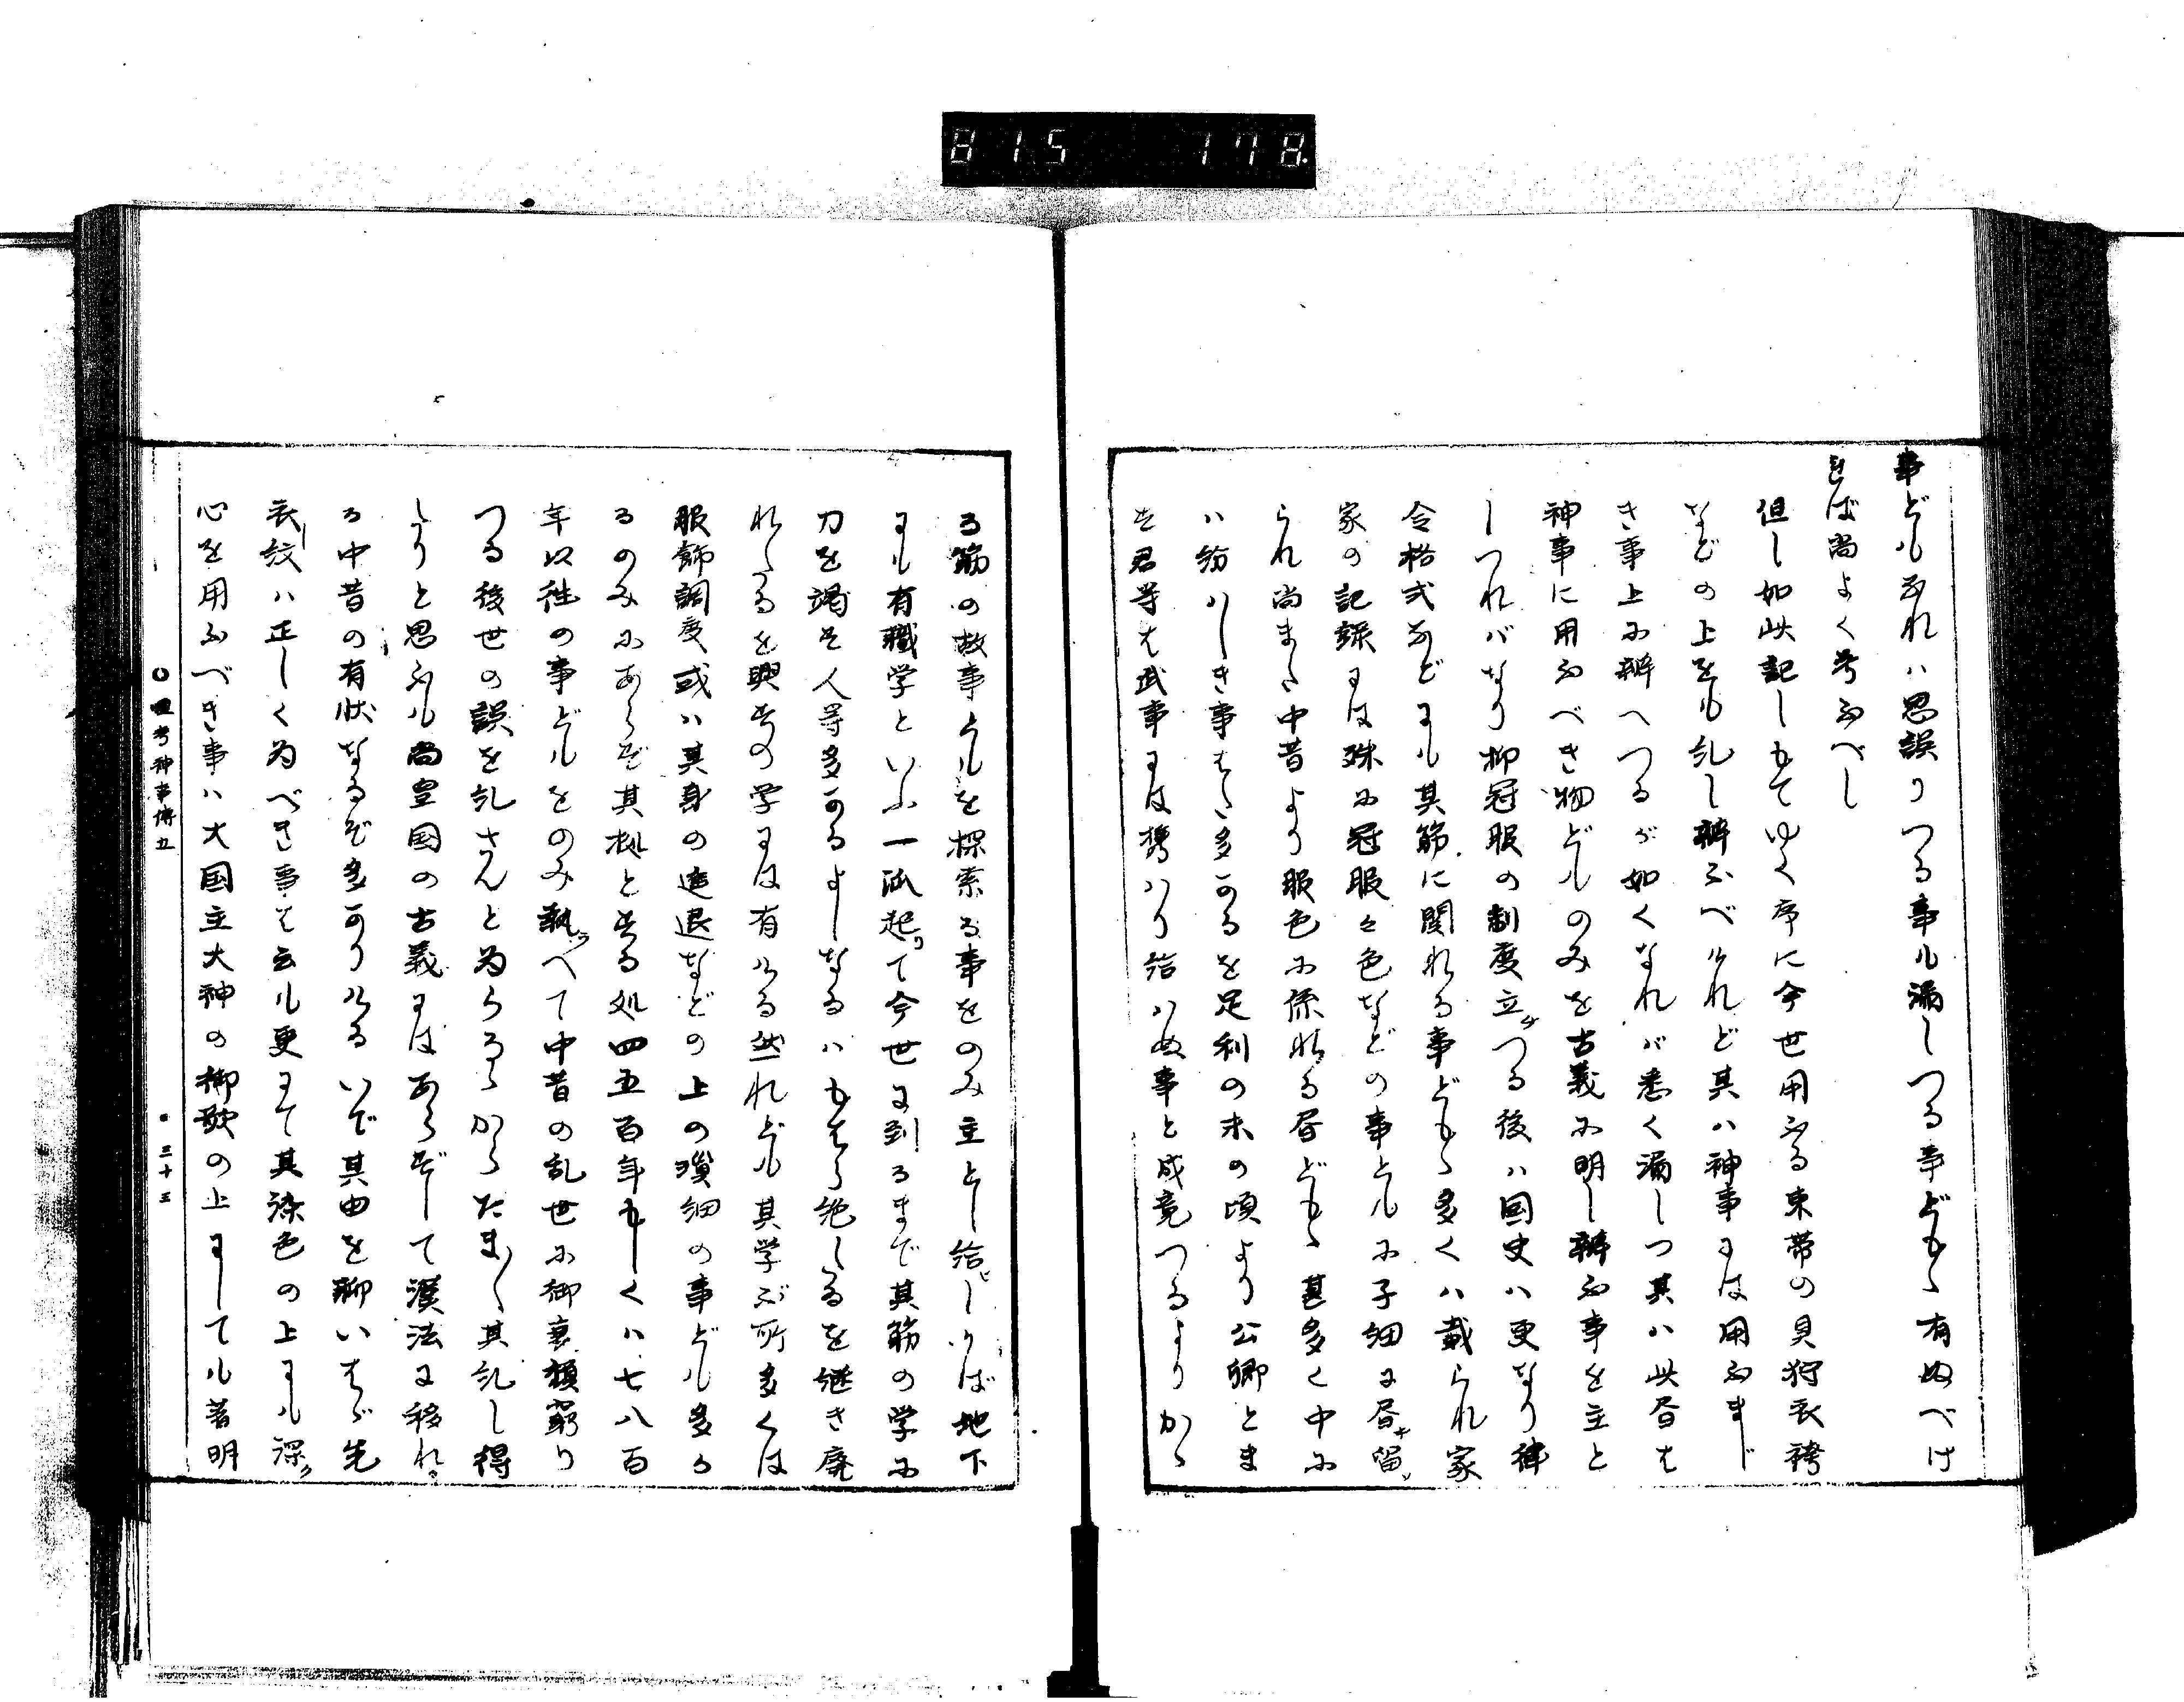 815 178.
事どもなれハ思誤りつる事も漏しつる事ども有ぬべけ
れば尚よく考ふべし
但し如此記しもてゆく序に今世用ふる束帯の具狩衣袴
などの上をも糺し辨ふべけれど其ハ神事には用ふまじ
き事上に辨へつるが如くなれバ悉く漏しつ其ハ此書は
神事に用ふべき物どものみを古義に明し辨ふ事を主と
しつれバなり抑冠服の制度立つる後ハ国史ハ更なり律
令格式などにも其筋に関れる事ども多くハ載られ家
家の記録には殊に冠服々色などの事ともに子細に書留
られ尚また中昔より服色に係れる書ども甚多く中に
ハ紛ハしき事はた多かるを足利の末の頃より公卿とま
す君等は武事には携ハり給ハぬ事と成竟つるよりかゝ
る筋の故事ともを探索る事をのみ主とし給しかば地下
にも有職学といふ一派起りて今世に到るまで其筋の学に
力を竭す人等多かるよしなるハもはら絶しるを継き廃
れしるを興すの学には有ける然れども其学ぶ所多くは
服飾調度或ハ其身の進退などの上の瑣細の事ども多か
るのみにあらず其拠とする処四五百年もしくハ七八百
年以往の事どもをのみ執へて中昔の乱世に御衰頽窮り
つる後世の誤を糺さんと為らるゝからたま〳〵其糺し得
しりと思ふも尚皇国の古義にはあらずして漢法に移れ
る中昔の有状なるぞ多かりけるいで其由を聊いはゞ先
衣紋ハ正しく為べき事は云も更にて其染色の上にも深く
心を用ふべき事ハ大国主大神の御歌の上にしても著明
神事傳五
三十三